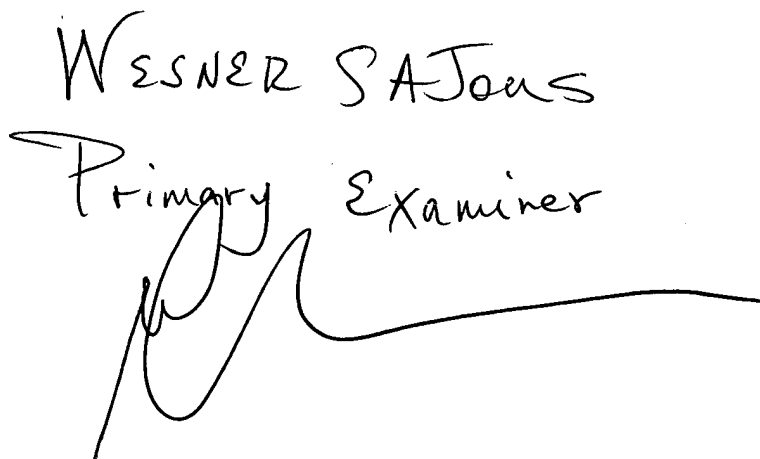 WESNER SAJous
Primary Examiner